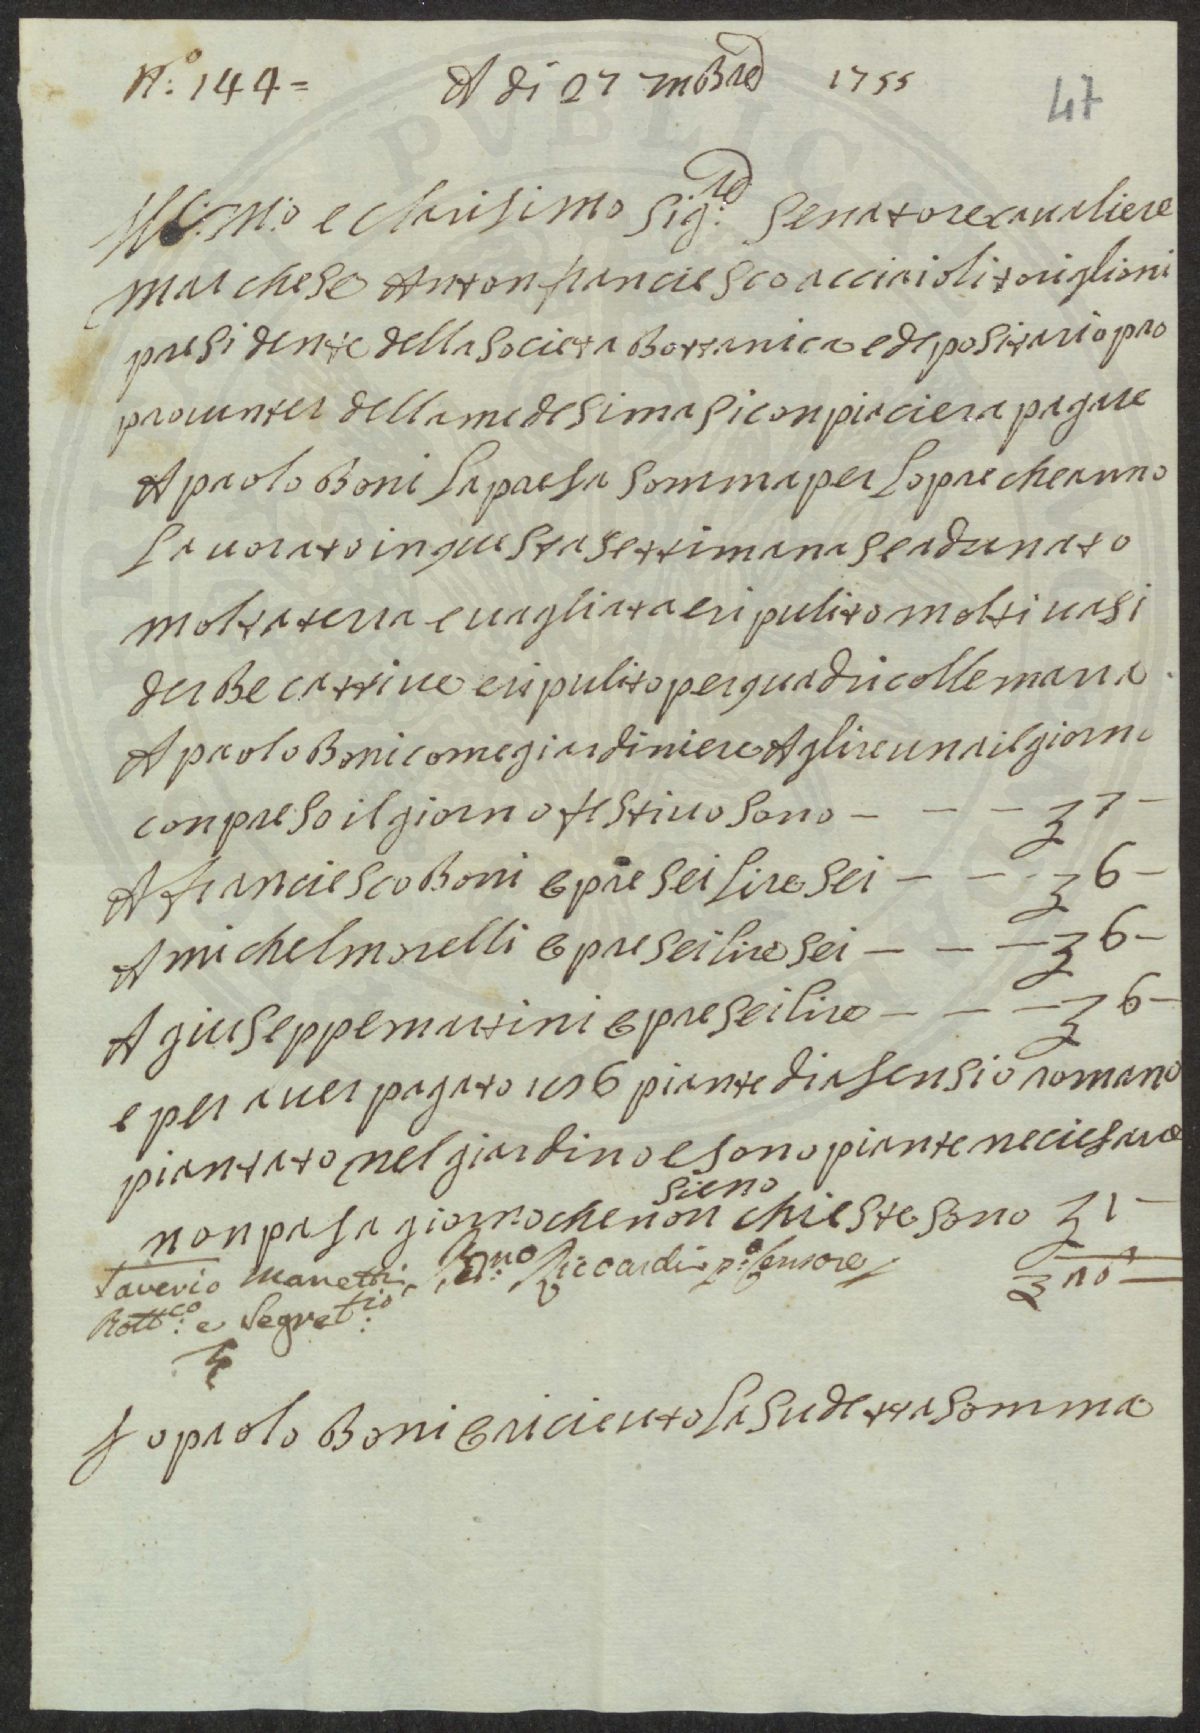 N.º 144 = A di 27 7mbre 1755
47
Ill:mo e clarisimo Sig:re Senatore caualiere
marchese Antonfranciesco acciaioli toriglioni
presidente della societa Bottanica e depositario pro
prouinter della medesima si conpiaciera pagare
A paolo Boni la presa somma per lopre che anno
lauorato in questa settimana se adunato
molta terra e uagliata e ripulito molti uasi
derbe cattiue e ripulito per quadri colle marra
A paolo Boni come giardiniere A lire una il giorno
conpreso il giorno festiuo sono — — — 7 —
A franciesco Boni 6 pre sei lire sei — — 6 —
A michel morelli 6 pre sei lire sei — — — 6 —
A giuseppe martini 6 pre sei lire — — — 6 —
e per auer pagato no 6 piante di asensio romano
piantato nel giardino e sono piante neciesarie
non pasa giorno che non sieno chieste sono 1 —
Saverio Manetti Riccardi p:º Censore
Bott:co e Segret:io
Io paolo Boni 6 riceuto la sudetta somma